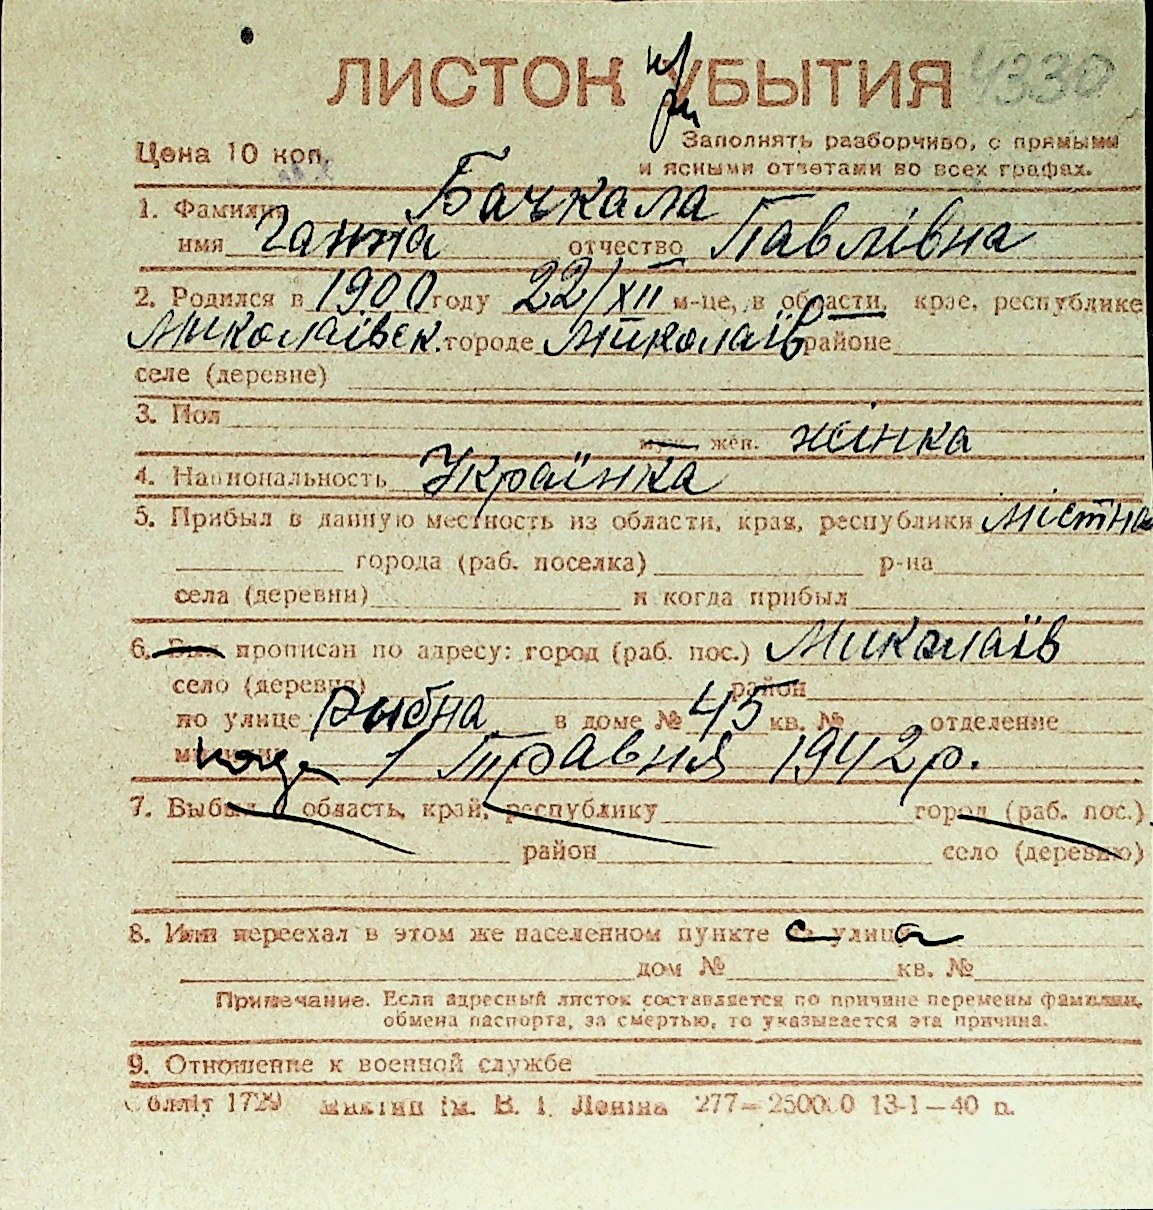 ЛИСТОК УБЫТИЯ
при
4330
Цена 10 коп.
Заполнять разборчиво, с прямыми
и ясными ответами во всех графах.
1. Фамилия Бачкала
имя Ганна отчество Павлівна
2. Родился в 1900 году 22/XII м-це, в области, крае, республике
Миколаївськ. городе Миколаїв районе
селе (деревне)
3. Пол
муж. жен. жінка
4. Национальность Українка
5. Прибыл в данную местность из области, края, республики містна
города (раб. поселка) р-на
села (деревни) и когда прибыл
6. Был прописан по адресу: город (раб. пос.) Миколаїв
село (деревня) район
по улице Рыбна в доме № 45 кв. № отделение
милиции 1 Травня 1942 р.
7. Выбыл в область, край, республику город (раб. пос.)
район село (деревню)
8. Или переехал в этом же населенном пункте с улица
дом № кв. №
Примечание. Если адресный листок составляется по причине перемены фамилии,
обмена паспорта, за смертью, то указывается эта причина.
9. Отношение к военной службе
Обллiт 1729 ім. В. І. Леніна 277—250000 13-1—40 р.